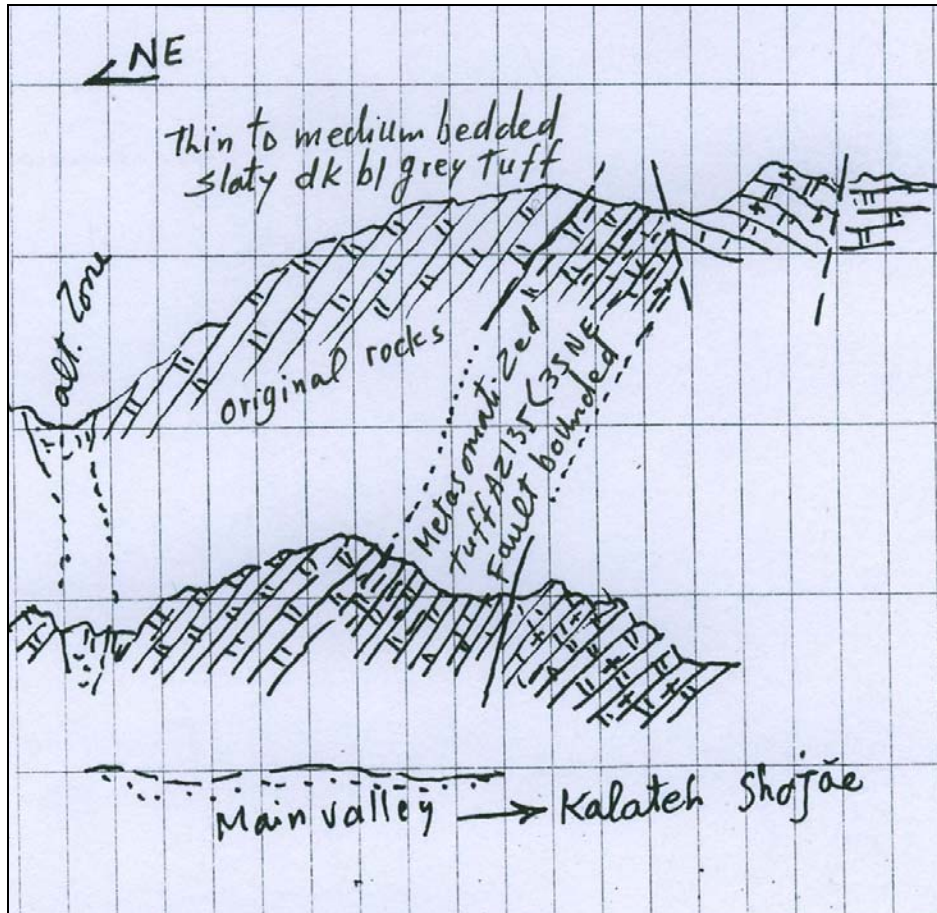 NE
Thin to medium bedded
slaty dk bl grey tuff
alt. Zone
original rocks
Metasomati Zed
tuff AZ 135 < 35 NE
Fault bounded
Main valley → Kalateh Shojãe